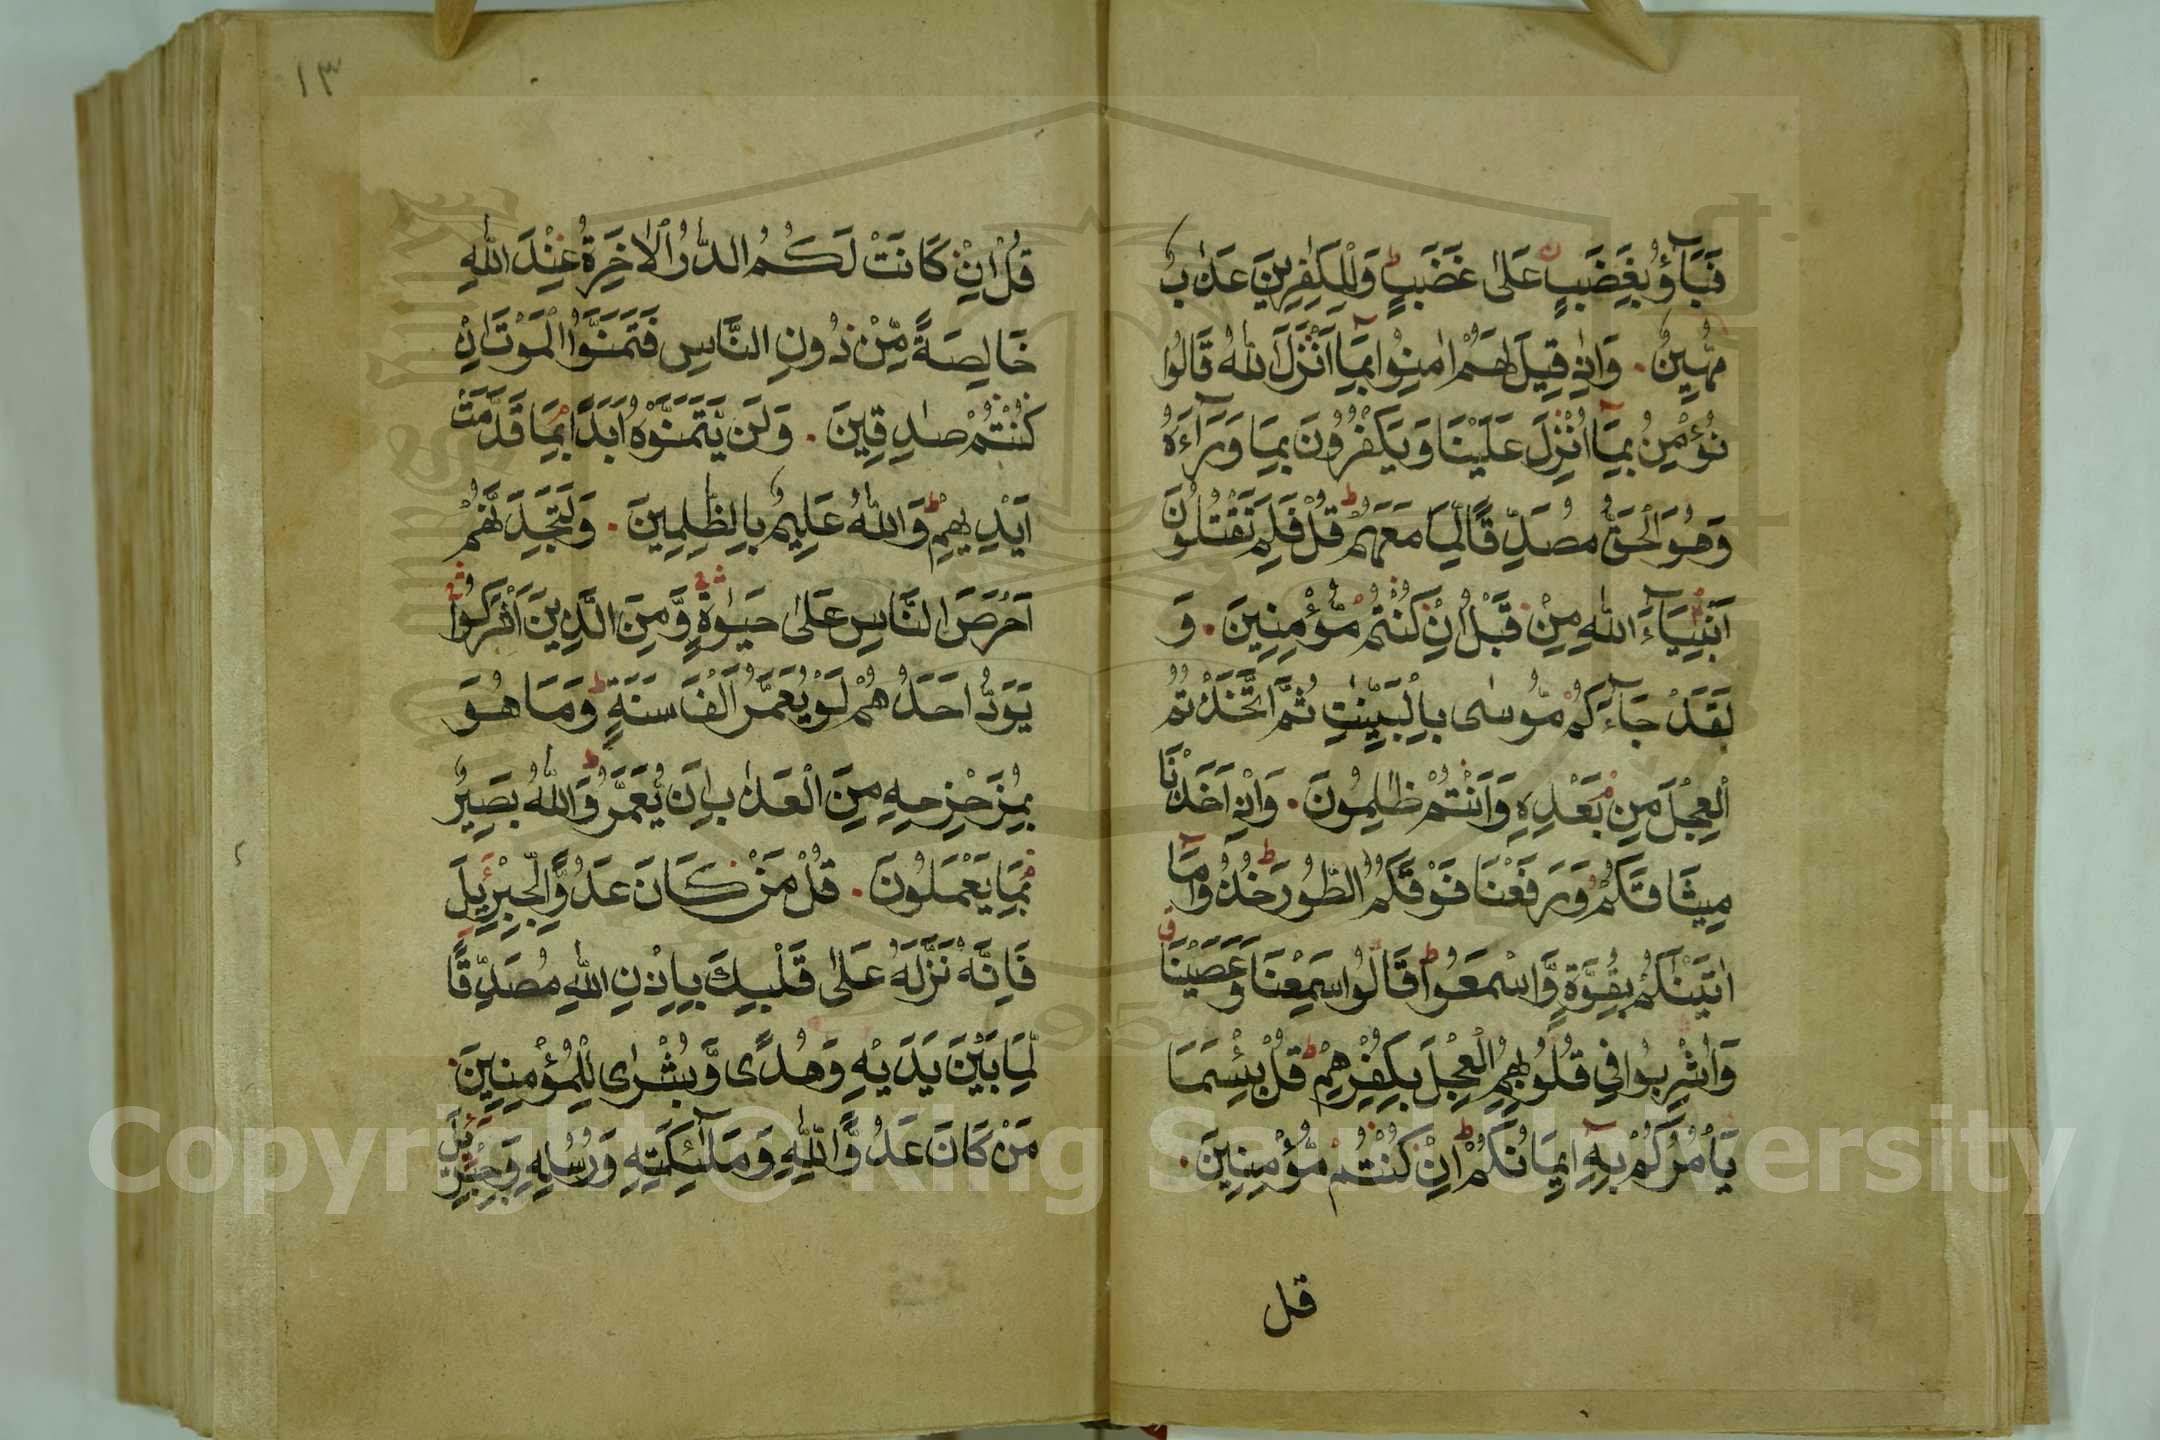 فَبَآؤُ بِغَضَبٍ عَلٰى غَضَبٍ ط وَلِلْكٰفِرِيْنَ عَذٰبٌ
مُّهِيْنٌ . وَاِذٰ قِيْلَ لَهُمْ اٰمِنُوْا بِمَآ اَنْزَلَ اللّٰهُ قَالُوْا
نُؤْمِنُ بِمَآ اُنْزِلَ عَلَيْنَا وَيَكْفُرُوْنَ بِمَا وَرَآءَهٗ
وَهُوَ الْحَقُّ مُصَدِّقًا لِّمَا مَعَهُمْ ط قُلْ فَلِمَ تَقْتُلُوْنَ
اَنْبِيَآءَ اللّٰهِ مِنْ قَبْلُ اِنْ كُنْتُمْ مُّؤْمِنِيْنَ . وَ
لَقَدْ جَآءَكُمْ مُّوْسٰى بِالْبَيِّنٰتِ ثُمَّ اتَّخَذْتُمُ
الْعِجْلَ مِنْ بَعْدِهٖ وَاَنْتُمْ ظٰلِمُوْنَ . وَاِذْ اَخَذْنَا
مِيْثَاقَكُمْ وَرَفَعْنَا فَوْقَكُمُ الطُّوْرَ ط خُذُوْا مَآ
اٰتَيْنٰكُمْ بِقُوَّةٍ وَّاسْمَعُوْا ط قَالُوْا سَمِعْنَا وَعَصَيْنَا ق
وَاُشْرِبُوْا فِيْ قُلُوْبِهِمُ الْعِجْلَ بِكُفْرِهِمْ ط قُلْ بِئْسَمَا
يَأْمُرُكُمْ بِهٖٓ اِيْمَانُكُمْ اِنْ كُنْتُمْ مُّؤْمِنِيْنَ .
قل
١٣
قُلْ اِنْ كَانَتْ لَكُمُ الدّٰرُ الْاٰخِرَةُ عِنْدَ اللّٰهِ
خَالِصَةً مِّنْ دُوْنِ النَّاسِ فَتَمَنَّوُا الْمَوْتَ اِنْ
كُنْتُمْ صٰدِقِيْنَ . وَلَنْ يَّتَمَنَّوْهُ اَبَدًا بِمَا قَدَّمَتْ
اَيْدِيْهِمْ ط وَاللّٰهُ عَلِيْمٌ بِالظّٰلِمِيْنَ . وَلَتَجِدَنَّهُمْ
اَحْرَصَ النَّاسِ عَلٰى حَيٰوةٍ وَّمِنَ الَّذِيْنَ اَشْرَكُوْا
يَوَدُّ اَحَدُهُمْ لَوْ يُعَمَّرُ اَلْفَ سَنَةٍ ط وَمَا هُوَ
بِمُزَحْزِحِهٖ مِنَ الْعَذٰبِ اَنْ يُّعَمَّرَ ط وَاللّٰهُ بَصِيْرٌ
بِمَا يَعْمَلُوْنَ . قُلْ مَنْ كَانَ عَدُوًّا لِّجِبْرِيْلَ
فَاِنَّهٗ نَزَّلَهٗ عَلٰى قَلْبِكَ بِاِذْنِ اللّٰهِ مُصَدِّقًا
لِّمَا بَيْنَ يَدَيْهِ وَهُدًى وَّبُشْرٰى لِلْمُؤْمِنِيْنَ .
مَنْ كَانَ عَدُوًّا لِّلّٰهِ وَمَلٰٓئِكَتِهٖ وَرُسُلِهٖ وَجِبْرِيْلَ
Copyright © King Saud University